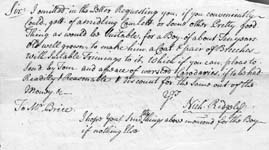 Sir I omited in the other Requesting you, if you conveniently
Could, gett of a midling Camblett or some other Pretty good
Thing as would be Suitable, for a Boy of about Ten years
Old well grown, to make him a Coat & pair of Breeches
with Suitable Trimings to it, which if you can, please to
Send by Tom and a peace of worsted, if to be had
Readily & Reasonable & discount for the Same out of the
Money &c
Yrs
Nich Ridgely
To Mr Brice
I hope you'll the things above mentioned for the Boy
if nothing else